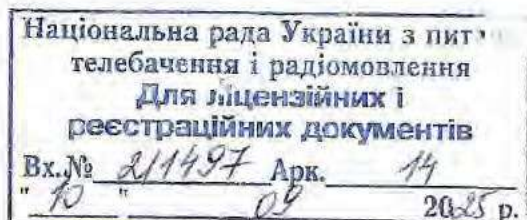 Національна рада України з пит
телебачення і радіомовлення
Для ліцензійних і
реєстраційних документів
Вх.№ 2/1497 Арк. 14
" 10 " 09 2025 р.